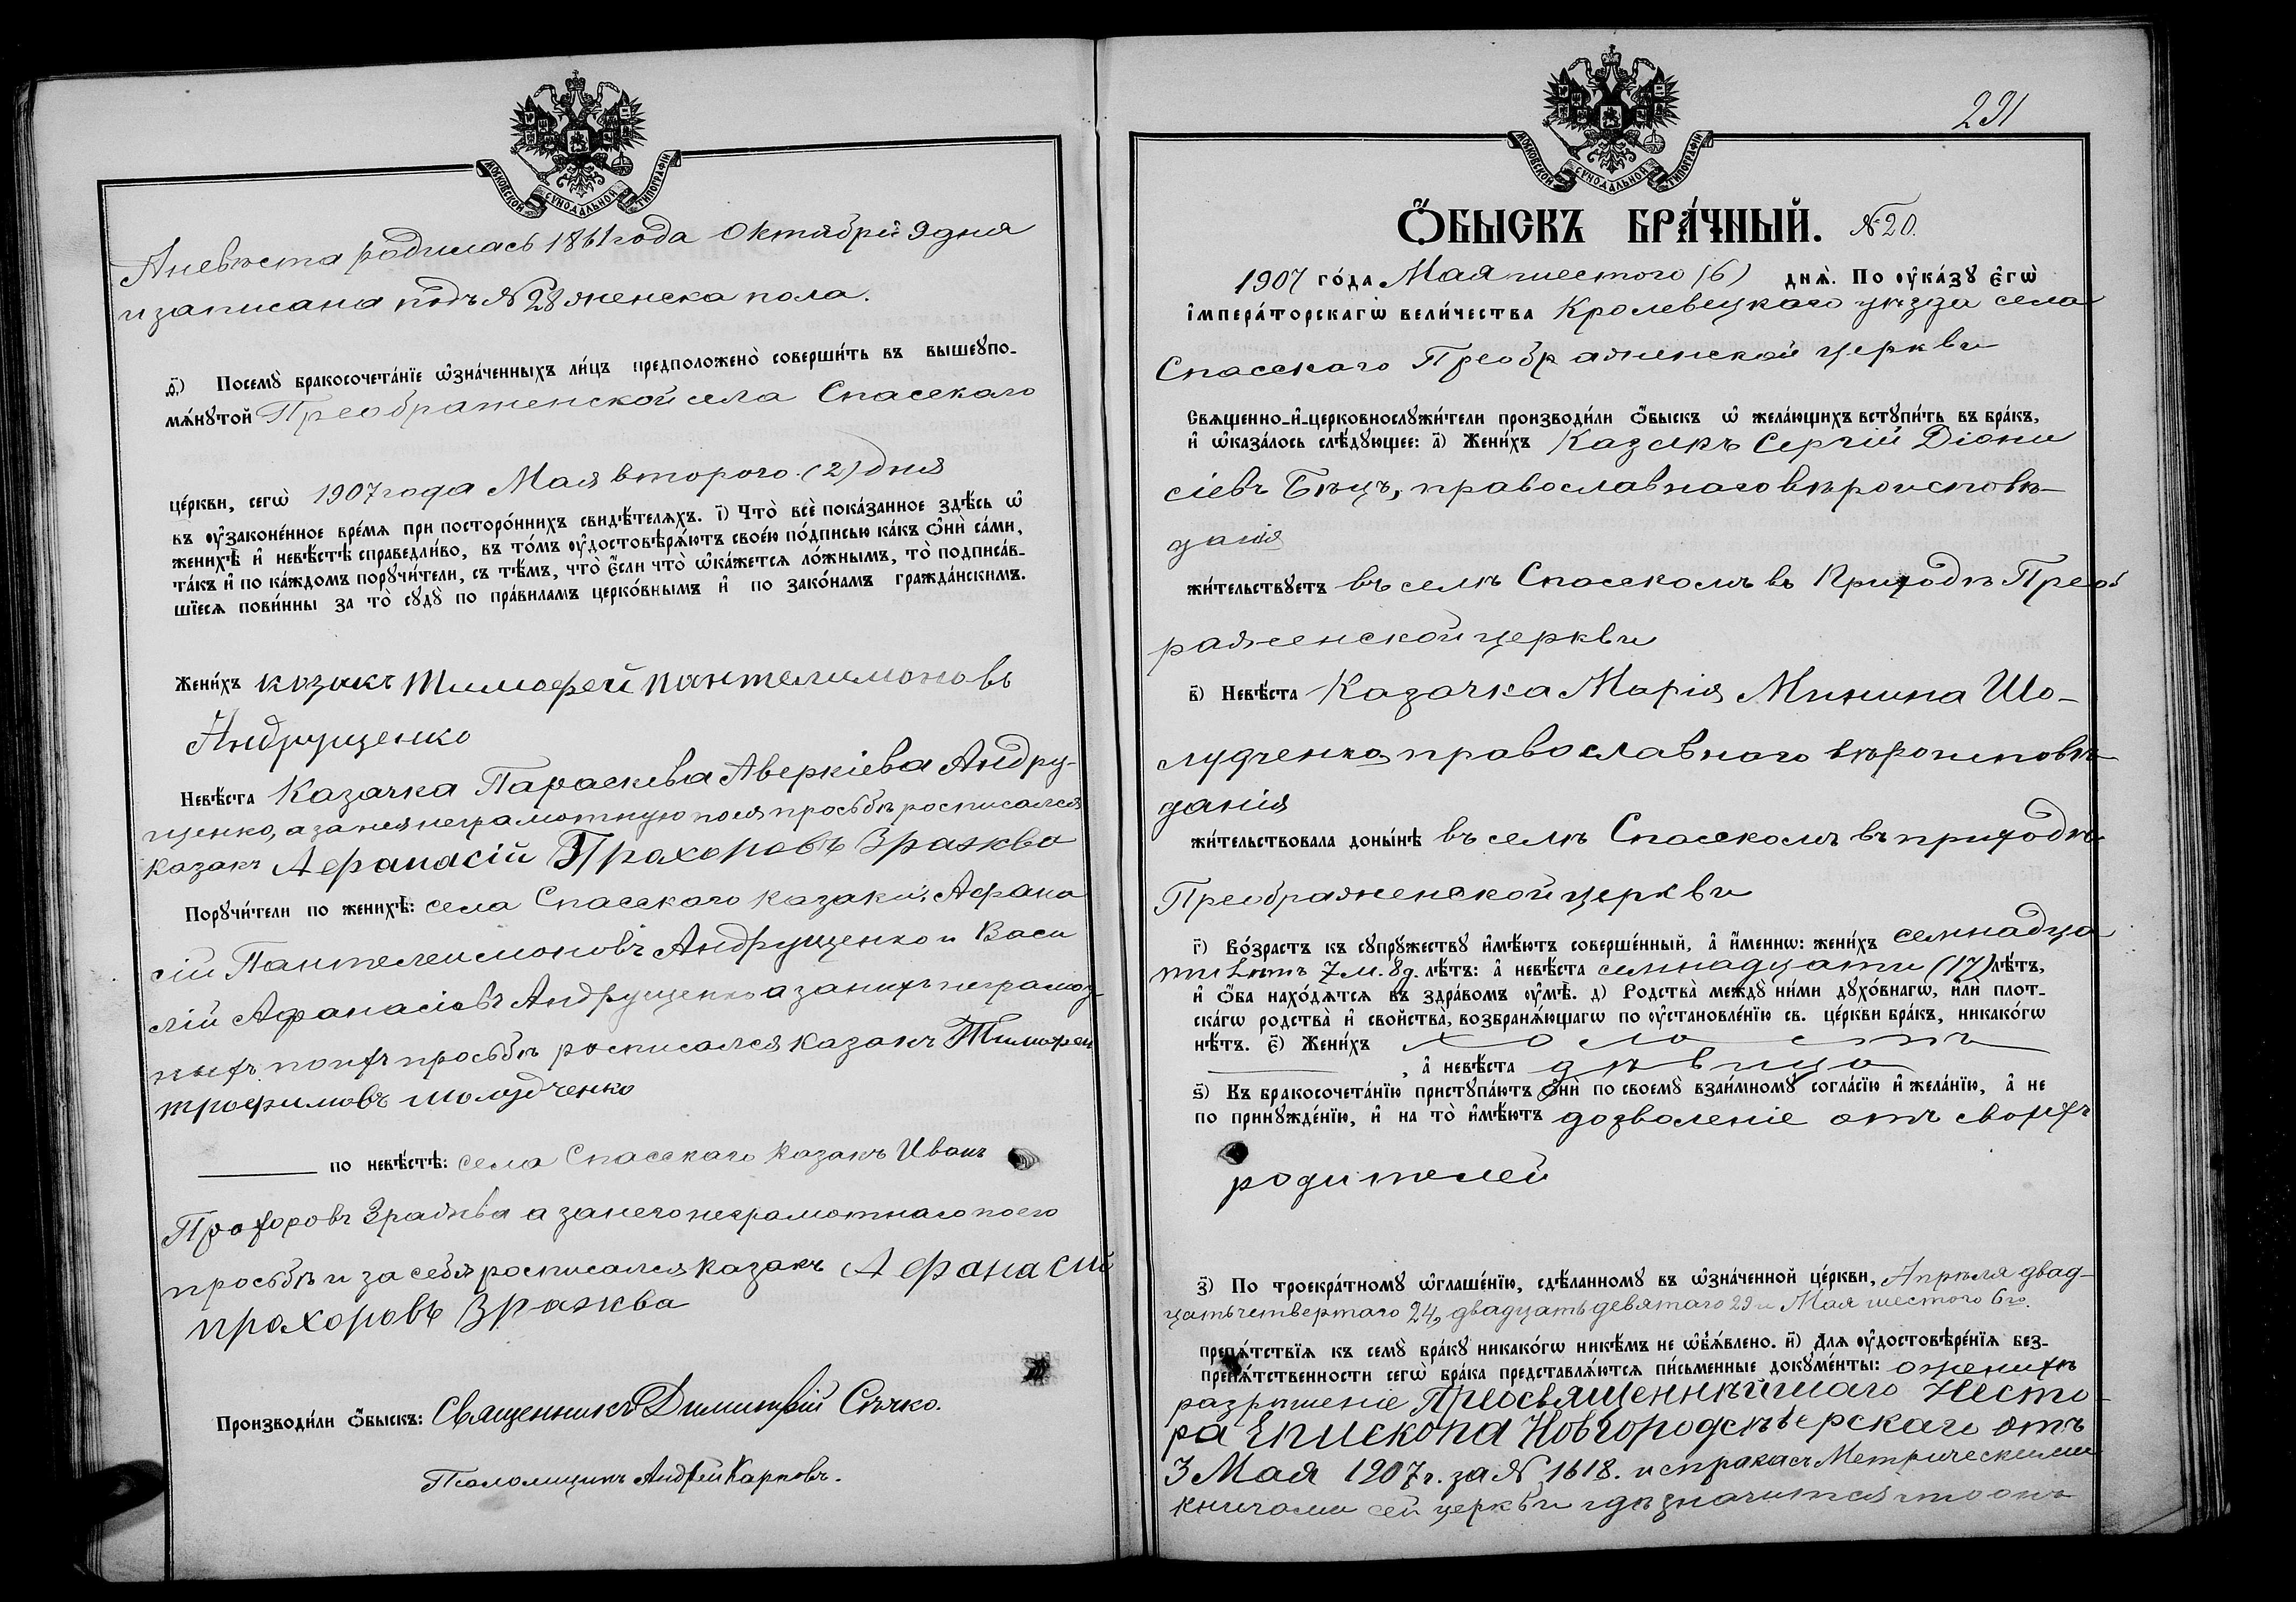 МОСКОВСКОЙ СѴНОДАЛЬНОЙ ТИПОГРАФІИ
А невѣста родилась 1861 года Октября 9 дня
и записана подъ № 28 женска пола.
ѳ҃) Посемꙋ̀ бракосочета́нїе ѡ҆зна́ченныхъ ли́цъ предположено̀ соверши́ть въ вышеꙋпо-
мѧ́нꙋтой Преображенской села Спасскаго
це́ркви, сегѡ̀ 1907 года Мая второго (2) дня
въ ᲂу҆законе́нное вре́мѧ при посторо́ннихъ свидѣ́телѧхъ. і҃) Что̀ всѐ пока́занное здѣ́сь ѡ҆
женихѣ̀ и҆ невѣ́стѣ справедли́во, въ то́мъ ᲂу҆достовѣрѧ́ютъ свое́ю по́дписью ка́къ ѻ҆нѝ са́ми,
та́къ и҆ по ка́ждомъ порꙋчи́тели, съ тѣ́мъ, что̀ є҆́сли что̀ ѡ҆ка́жется ло́жнымъ, то̀ подписа́в-
шїеся пови́нны за то̀ сꙋдꙋ̀ по пра́виламъ церко́внымъ и҆ по зако́намъ гражда́нскимъ.
Жени́хъ козакъ Тимофей Пантелимоновъ
Андрущенко
Невѣ́ста Казачка Параскева Аверкіева Андру-
щенко, а за нея неграмотную по ея просьбѣ росписался
казакъ Афанасій Прохоровъ Зражква
Порꙋчи́тели по женихѣ̀: села Спасскаго казаки: Афана
сій Пантелеимоновъ Андрущенко и Васи
лій Афанасіевъ Андрущенко а за нихъ неграмот-
ныхъ по ихъ просьбѣ росписался казакъ Тимофеи
трофимовъ шолудченко
по невѣ́стѣ: села Спасскаго казакъ Иванъ
Прохоровъ Зражква а за него неграмотнаго по его
просьбѣ и за себя росписался казакъ Афанасій
прохоровъ Зражква
Производи́ли ѻ҆́быскъ: Священникъ Димитрій Сѣчко.
Псаломщикъ Андрей Карповъ.
291
МОСКОВСКОЙ СѴНОДАЛЬНОЙ ТИПОГРАФІИ
Ѻ҆́БЫСКЪ БРА́ЧНЫЙ. № 20.
1907 го́да Мая шестого (6) днѧ̀. По ᲂу҆ка́зꙋ є҆гѡ̀
і҆мпера́торскагѡ вели́чества Кролевецкаго уѣзда села
Спасскаго Преображенской церкви
Свѧщенно-и҆-церковнослꙋжи́тели производи́ли ѻ҆́быскъ ѡ҆ жела́ющихъ встꙋпи́ть въ бра́къ,
и҆ ѡ҆каза́лось слѣ́дꙋющее: а҃) Жени́хъ Казакъ Сергій Діони
сіевъ Бѣцъ, православнаго вѣроисповѣ-
данія
жи́тельствꙋетъ въ селѣ Спасскомъ въ приходѣ Преоб
раженской церкви
в҃) Невѣ́ста Казачка Марія Минина Шо-
лудченко православнаго вѣроисповѣ-
данія
жи́тельствовала доны́нѣ въ селѣ Спасскомъ въ приходѣ
Преображенской церкви
г҃) Во́зрастъ къ сꙋпрꙋ́жествꙋ и҆мѣ́ютъ соверше́нный, а҆ и҆́меннѡ: жени́хъ семнадца
ти лѣтъ 7 м. 8 д. лѣ́тъ: а҆ невѣ́ста семнадцати (17) лѣ́тъ,
и҆ ѻ҆́ба нахо́дѧтся въ здра́вомъ ᲂу҆мѣ̀. д҃) Родства̀ междꙋ̀ ни́ми дꙋхо́внагѡ, и҆лѝ плот-
ска́гѡ родства̀ и҆ свойства̀, возбранѧ́ющагѡ по ᲂу҆становле́нїю св. це́ркви бра́къ, никако́гѡ
нѣ́тъ. є҃) Жени́хъ холостъ
, а҆ невѣ́ста дѣвица
ѕ҃) Къ бракосочета́нїю пристꙋпа́ютъ ѻ҆нѝ по своемꙋ̀ взаи́мномꙋ согла́сїю и҆ жела́нїю, а҆ не
по принꙋжде́нїю, и҆ на то̀ и҆мѣ́ютъ дозволеніе отъ своихъ
родителей
з҃) По троекра́тномꙋ ѡ҆глаше́нїю, сдѣ́ланномꙋ въ ѡ҆зна́ченной це́ркви, Апрѣля двад-
цать четвертаго 24, двадцать девятаго 29 и Мая шестого 6го.
препѧ́тствїя къ семꙋ̀ бра́кꙋ никако́гѡ никѣ́мъ не ѡ҆б̾ѧ́влено. и҃) Для ᲂу҆достовѣре́нїя без-
препѧ́тственности сегѡ̀ бра́ка представлѧ́ются пи́сьменные докꙋме́нты: о женихѣ
разрѣшеніе Преосвященнѣйшаго Несто-
ра Епископа Новгородсѣверскаго отъ
3 Мая 1907 г. за № 1618. и справка съ Метрическими
книгами сей церкви гдѣ значится что онъ